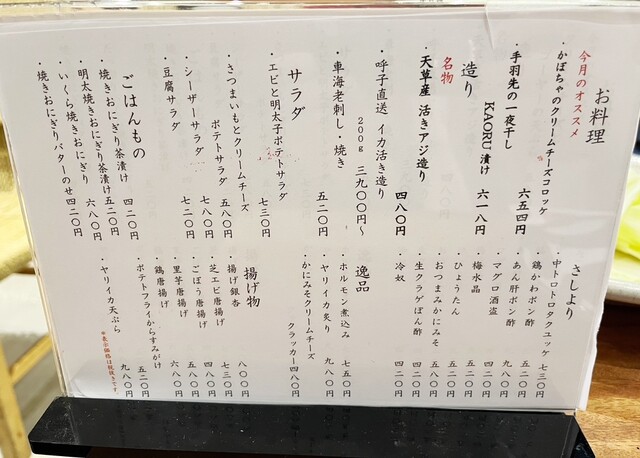 お料理
今月のオススメ
・かぼちゃのクリームチーズコロッケ
六五四円
・手羽先の一夜干し
KAORU漬け 六一八円
造り
名物
天草産 活きアジ造り
四八〇円
・呼子直送 イカ活き造り
200g 三九〇〇円〜
・車海老刺し・焼き
五二〇円
サラダ
・エビと明太子ポテトサラダ
七三〇円
・さつまいもとクリームチーズ
ポテトサラダ 五八〇円
・シーザーサラダ 七八〇円
・豆腐サラダ 七二〇円
ごはんもの
・焼きおにぎり茶漬け 四二〇円
・明太焼きおにぎり茶漬け五二〇円
・いくら焼きおにぎり 六八〇円
・焼きおにぎりバターのせ四二〇円
さしより
・中トロトロタクユッケ 七三〇円
・鶏かわポン酢 四二〇円
・あん肝ポン酢 九八〇円
・マグロ酒盗 四二〇円
・梅水晶 五二〇円
・ひょうたん 五二〇円
・おつまみかにみそ 五八〇円
・生クラゲぽん酢 四二〇円
・冷奴 四二〇円
逸品
・ホルモン煮込み 七五〇円
・ヤリイカ炙り 九八〇円
・かにみそクリームチーズ
クラッカー四八〇円
揚げ物
・揚げ銀杏 八〇〇円
・芝エビ唐揚げ 七三〇円
・ごぼう唐揚げ 四八〇円
・里芋唐揚げ 五二〇円
・鶏唐揚げ 六八〇円
・ポテトフライからすみがけ
五二〇円
・ヤリイカ天ぷら 九八〇円
※表示価格は税抜きです。